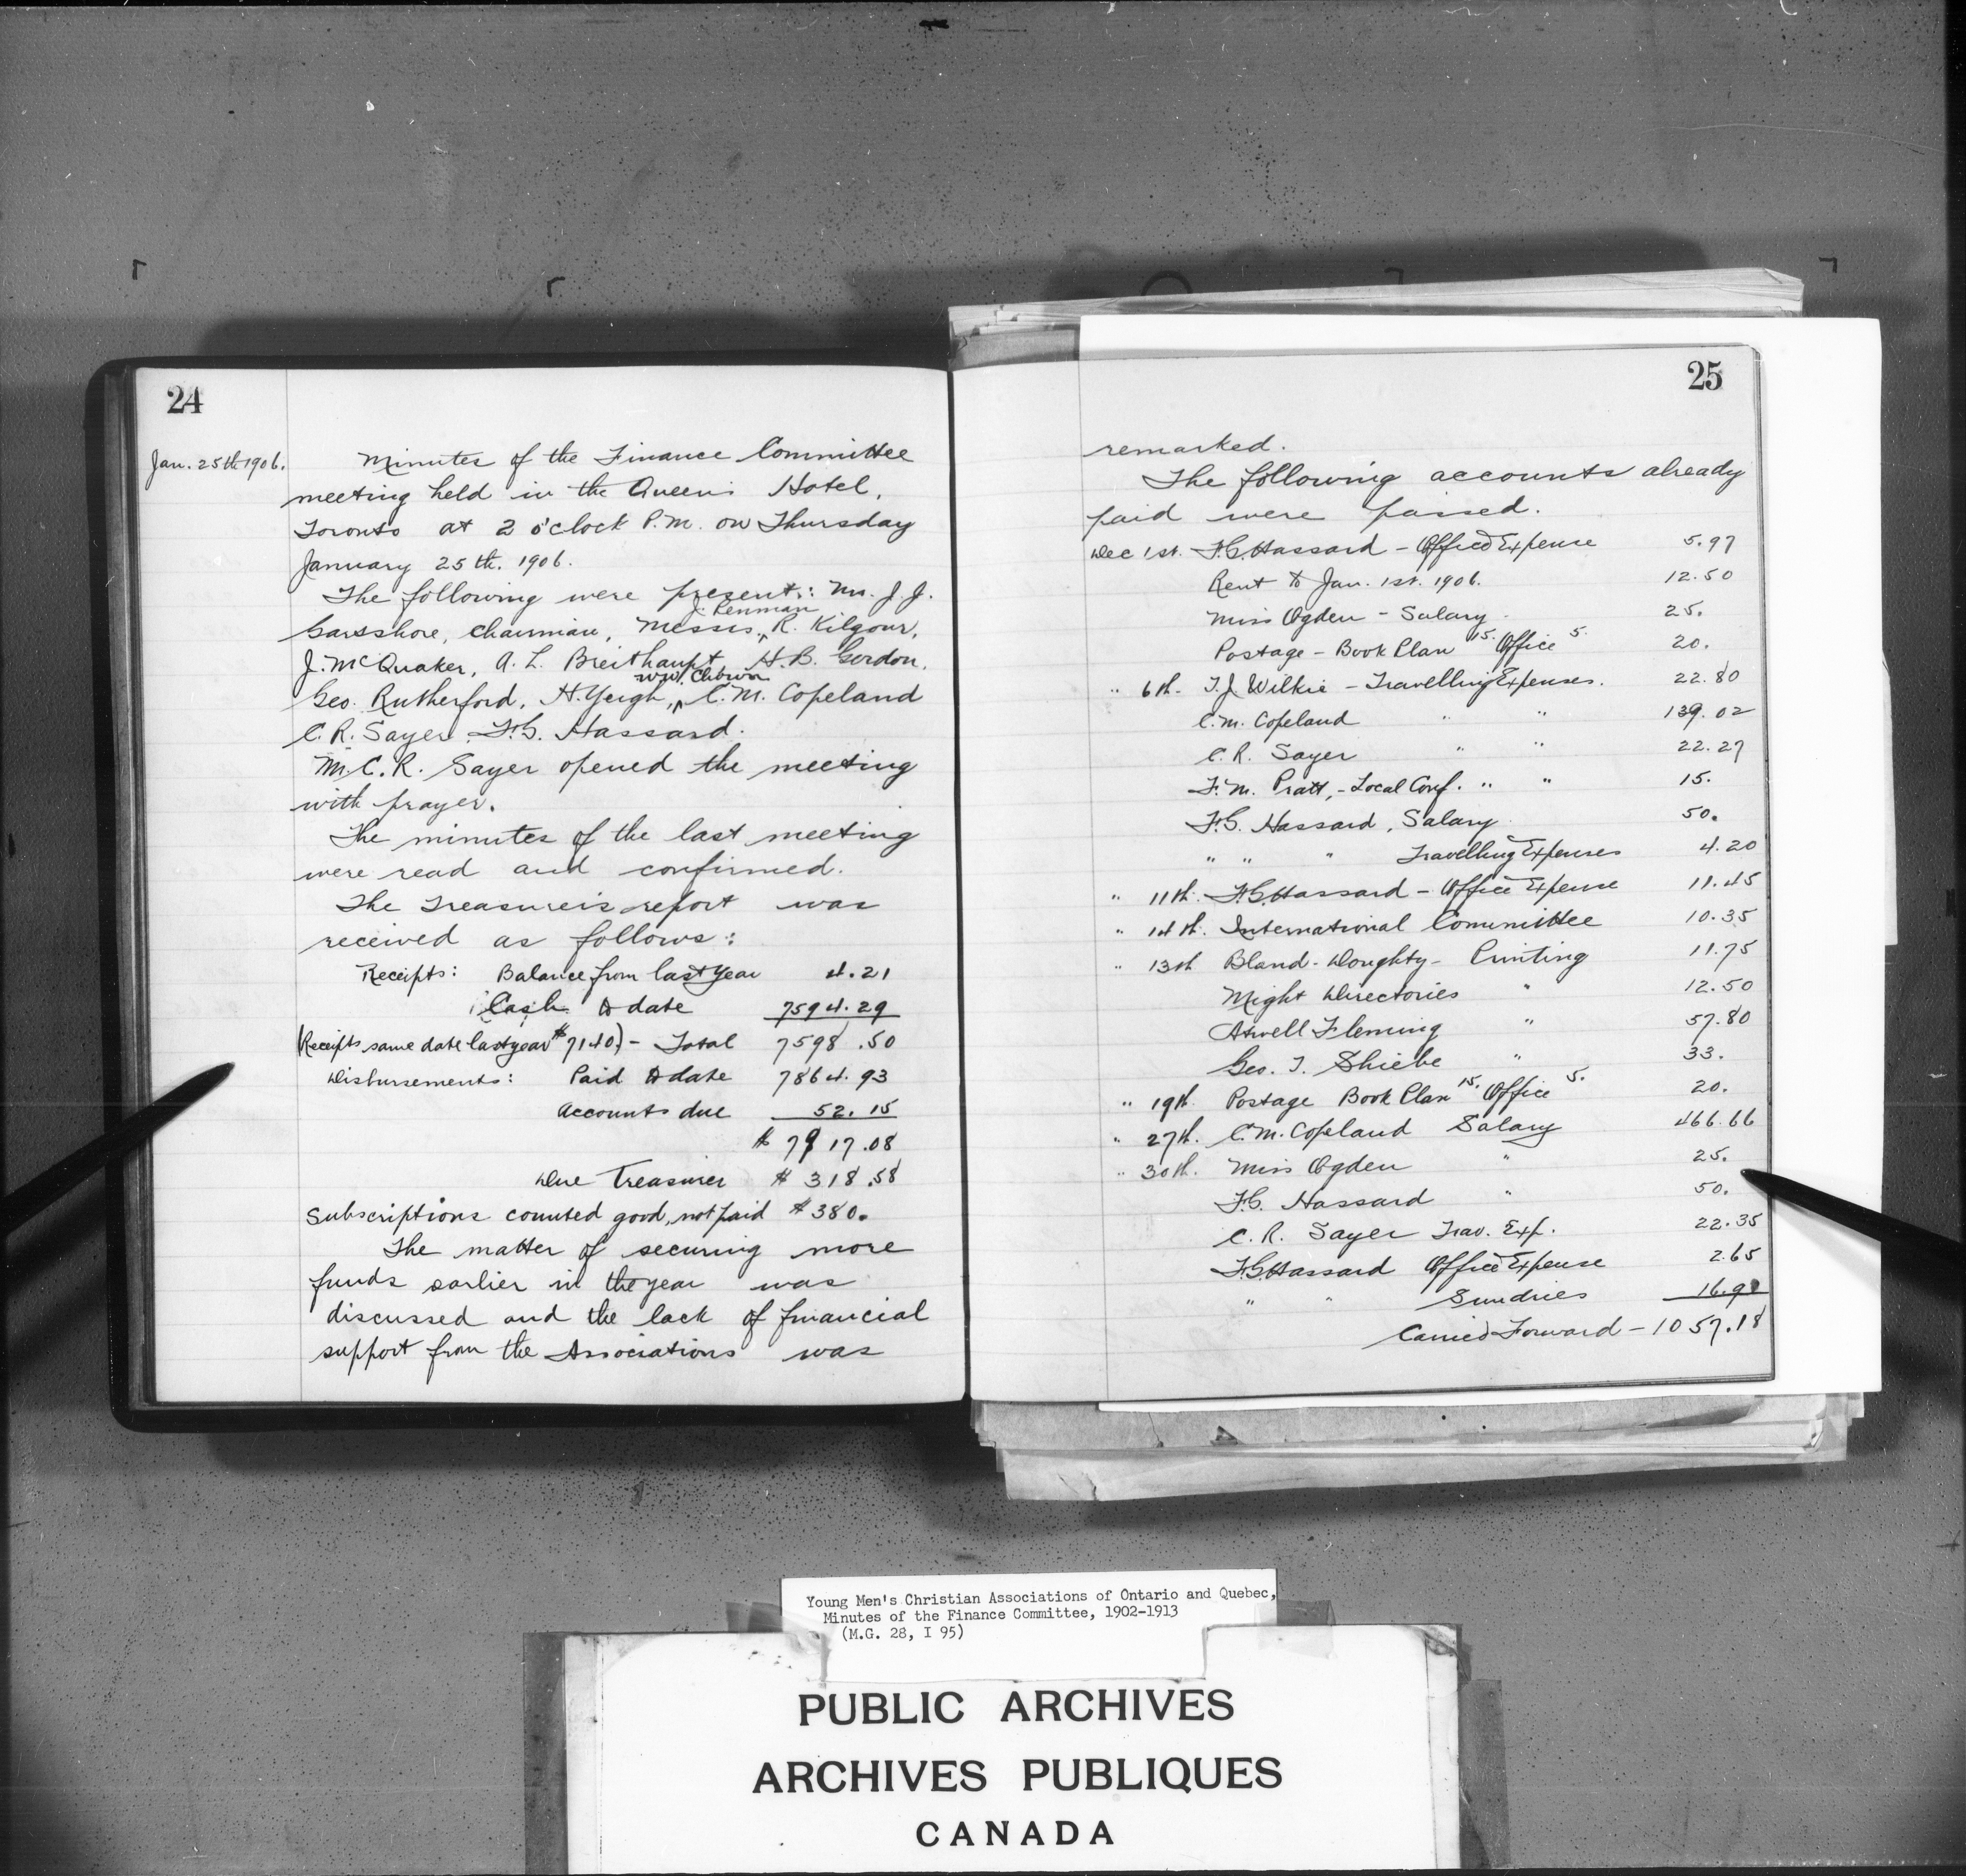 24
Jan. 25th 1906.
Minutes of the Finance Committee
meeting held in the Queen's Hotel,
Toronto at 2 o'clock P.M. on Thursday
January 25th. 1906.
The following were present: Mr. J. J.
J. Penman
Garsshore, Chairman, Messrs, R. Kilgour,
J. McQuaker, A. L. Breithaupt, H. B. Gordon,
W.W. Chown
Geo. Rutherford, H. Yeigh, C. M. Copeland
C. R. Sayer, F. G. Hassard.
M. C. R. Sayer opened the meeting
with prayer.
The minutes of the last meeting
were read and confirmed.
The Treasurer's report was
received as follows:
Receipts: Balance from last year 4.21
Cash to date 7594.29
(Receipts same date last year $7140) - Total 7598.50
Disbursements: Paid to date 7864.93
Accounts due 52.15
$ 7917.08
Due Treasurer $ 318.58
Subscriptions counted good, not paid $380.
The matter of securing more
funds earlier in the year was
discussed and the lack of financial
support from the Associations was
25
remarked.
The following accounts already
paid were passed.
Dec 1st. F. G. Hassard - Office Expense 5.97
Rent to Jan. 1st. 1906. 12.50
Miss Ogden - Salary 25.
Postage - Book Plan 15. Office 5. 20.
" 6th. T. J. Wilkie - Travelling Expenses. 22.80
C. M. Copeland " " 139.02
C. R. Sayer " " 22.27
F. M. Pratt, - Local Conf. " " 15.
F. G. Hassard, Salary 50.
" " " Travelling Expenses 4.20
" 11th. F. G. Hassard - Office Expense 11.45
" 14th. International Committee 10.35
" 13th Bland - Doughty - Printing 11.75
Might Directories " 12.50
Atwell Fleming " 57.80
Geo. T. " 33.
" 19th. Postage Book Plan 15. Office 5. 20.
" 27th. C. M. Copeland Salary 466.66
" 30th. Miss Ogden " 25.
F. G. Hassard " 50.
C. R. Sayer Trav. Exp. 22.35
F. G. Hassard Office Expense 2.65
" " Sundries
Carried Forward - 1057.18
Young Men's Christian Associations of Ontario and Quebec,
Minutes of the Finance Committee, 1902-1913
(M.G. 28, I 95)
PUBLIC ARCHIVES
ARCHIVES PUBLIQUES
CANADA